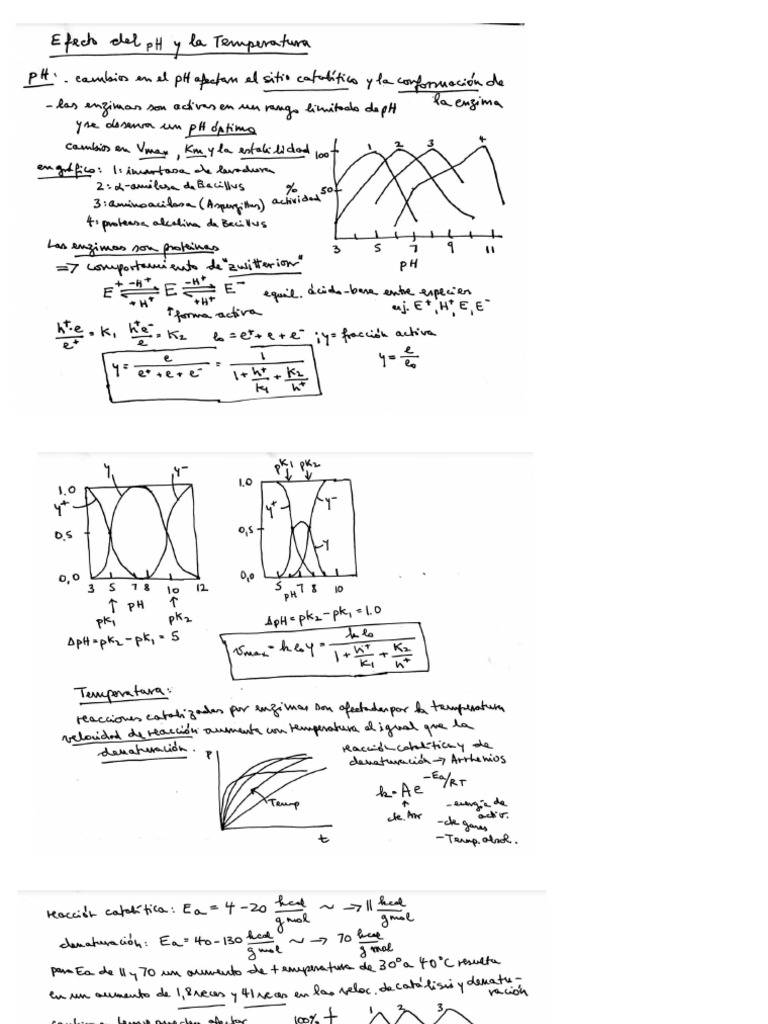 Efecto del pH y la Temperatura
pH: . cambios en el pH afectan el sitio catalítico y la conformación de
la enzima
- las enzimas son activas en un rango limitado de pH
y se observa un pH óptimo
cambios en Vmax, Km y la estabilidad
en gráfico: 1: invertasa de levadura
2: α-amilasa de Bacillus
3: aminoacilasa (Aspergillus)
4: proteasa alcalina de Bacillus
100
50
% actividad
1 2 3 4
3 5 7 9 11
pH
Las enzimas son proteínas
=> comportamiento de "zwitterion"
E+ -H+ +H+ E -H+ +H+ E-
↑ forma activa
equil. ácido-base entre especies
ej. E+, H+, E, E-
h+·e/e+ = K1 h+e-/e = K2 e0 = e+ + e + e- ; y = fracción activa
y = e/(e+ + e + e-) = 1/(1 + h+/K1 + K2/h+)
y = e/e0
y y-
1.0
y+
0.5
0,0
3 5 7 8 10 12
↑ pH ↑
pK1 pK2
ΔpH = pK2 - pK1 = 5
pK1 pK2
1.0
y+ y-
0,5
y
0,0
5 7 8 10
pH
ΔpH = pK2 - pK1 = 1.0
vmax = k e0 y = k e0/(1 + h+/K1 + K2/h+)
Temperatura:
reacciones catalizadas por enzimas son afectadas por la temperatura
velocidad de reacción aumenta con temperatura al igual que la
denaturación.
P
Temp
t
reacción catalítica y de
denaturación → Arrhenius
k = Ae -Ea/RT
↑
cte. Arr
- energía de
activ.
- cte gases
- Temp. absol.
reacción catalítica: Ea = 4 - 20 kcal/gmol ~ → 11 kcal/gmol
denaturación: Ea = 40 - 130 kcal/gmol ~ → 70 kcal/gmol
para Ea de 11 y 70 un aumento de temperatura de 30° a 40°C resulta
en un aumento de 1,8 veces y 41 veces en las veloc. de catálisis y denatu-
ración
100%
1 2 3